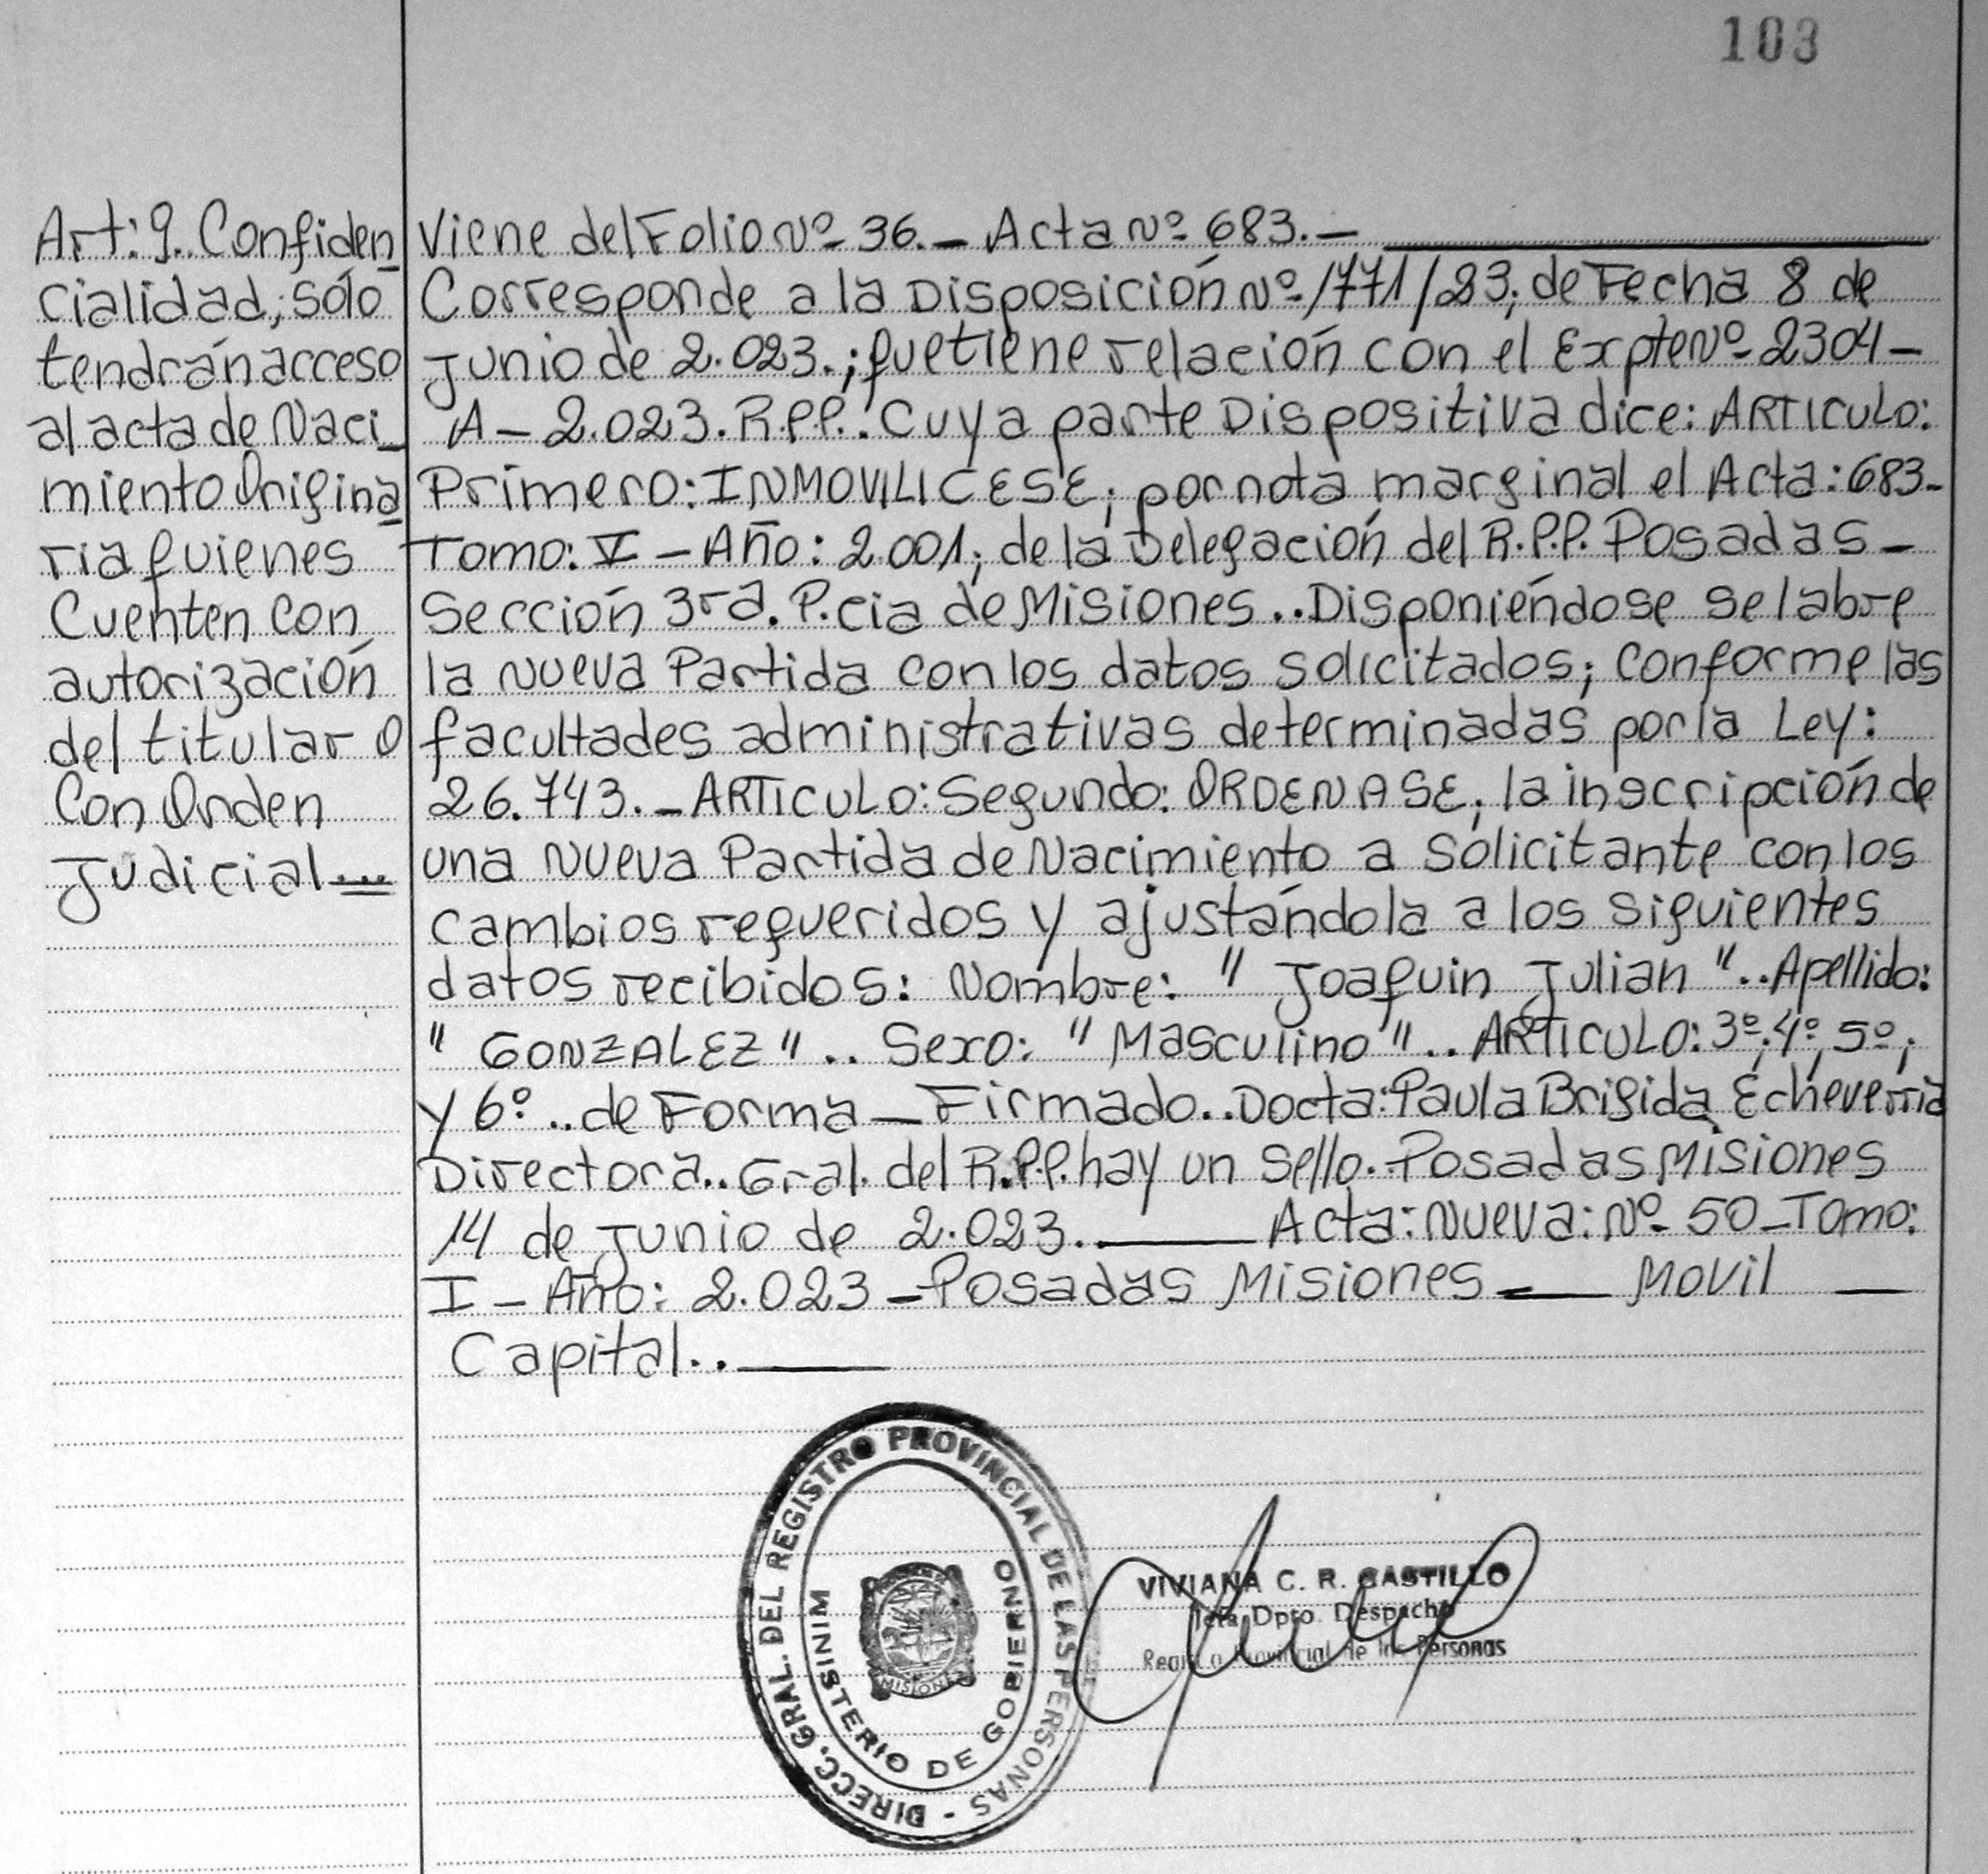 103
Art: 9.. Confiden
cialidad; sólo
tendrán acceso
al acta de Naci_
miento Origina
ria quienes
Cuenten con
autorización
del titular O
Con Orden
Judicial...
Viene del Folio Nº 36._ Acta Nº 683._
Corresponde a la Disposición Nº 1771/23; de Fecha 8 de
Junio de 2.023.; que tiene relación con el Expte Nº 2304-
A - 2.023. R.P.P.. Cuya parte Dispositiva dice: ARTICULO:
Primero: INMOVILICESE; por nota marginal el Acta: 683-
Tomo: V - Año: 2.001; de la Delegación del R.P.P. Posadas -
Sección 3ra. P.cia de Misiones.. Disponiéndose se labre
la Nueva Partida con los datos solicitados; conforme las
facultades administrativas determinadas por la Ley:
26.743._ ARTICULO: Segundo: ORDENASE; la inscripción de
una Nueva Partida de Nacimiento a Solicitante con los
cambios requeridos y ajustándola a los siguientes
datos recibidos: Nombre: " Joaquin Julian ".. Apellido:
" GONZALEZ " .. Sexo: " Masculino " .. ARTICULO: 3º; 4º; 5º;
y 6º .. de Forma _ Firmado.. Docta: Paula Brigida Echeverria
Directora.. Gral. del R.P.P. hay un Sello.. Posadas Misiones
14 de Junio de 2.023. Acta: Nueva: Nº 50 _ Tomo:
I - Año: 2.023 - Posadas Misiones _ Movil _
Capital..
DIRECC. GRAL. DEL REGISTRO PROVINCIAL DE LAS PERSONAS -
MINISTERIO DE GOBIERNO
MISIONES
VIVIANA C. R. CASTILLO
Jefa Dpto. Despacho
Registro Provincial de las Personas